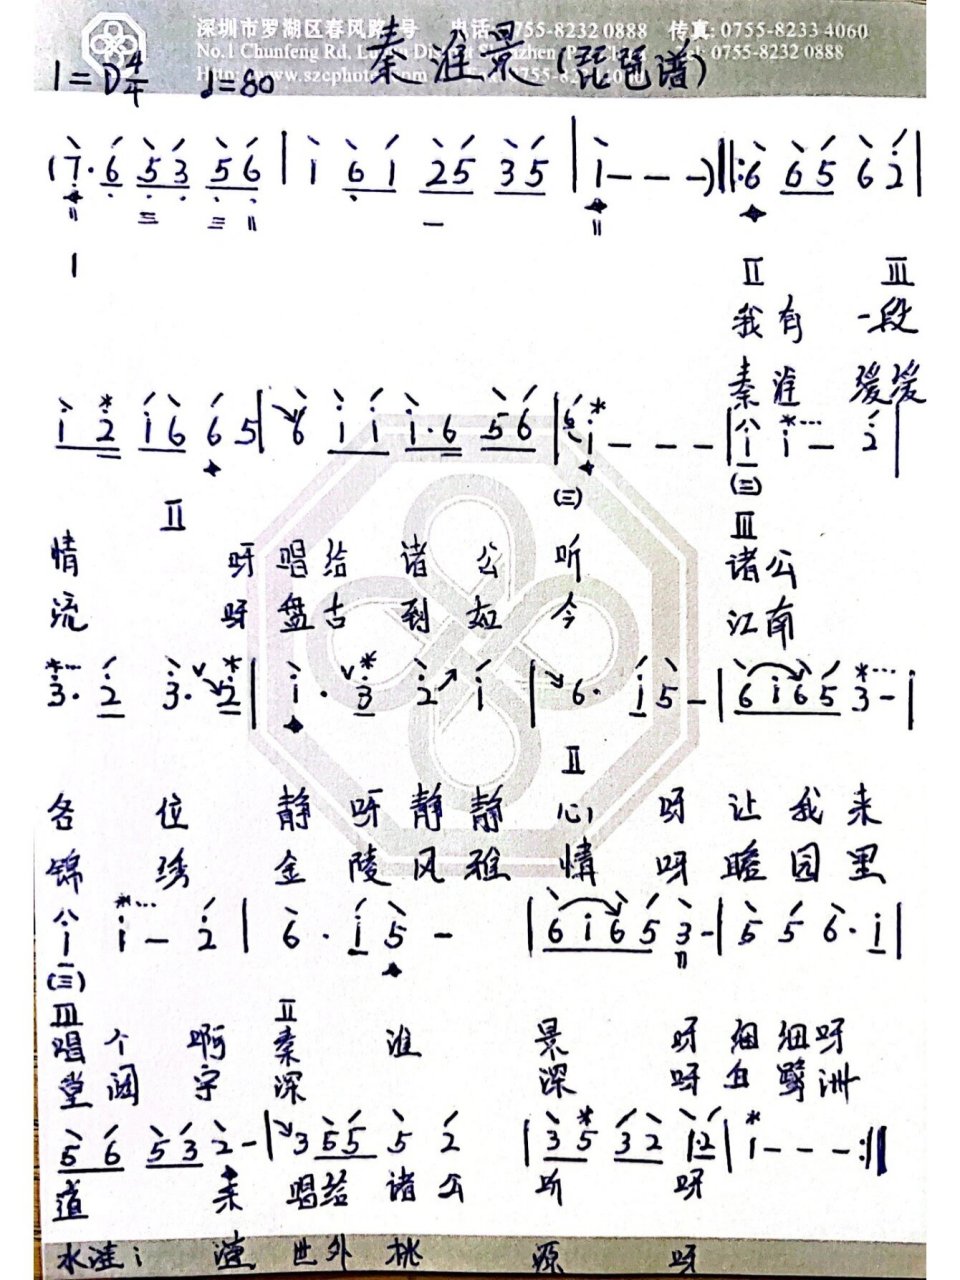 深圳市罗湖区春风路 号 电话: 0755-8232 0888 传真: 0755-8233 4060
No.1 Chunfeng Rd, 0755-8232 0888
秦淮景(琵琶谱)
1=D 4/4 ♩=80
(7·6 53 56 | i 61 25 35 | 1 - - -) ||: 6 65 6 2 |
II III
我有 一段
秦淮 缓缓
i2 i6 6 5 | 6 ii i·6 56 | i - - - | i i - 2 |
II (三) (三) III
情 呀唱给 诸公 听 诸公
流 呀盘古 到如 今 江南
3·2 3·2 | i·3 2 i | 6·i 5 - | 6i65 3 - |
II
各位 静呀静静 心 呀让我来
锦绣 金陵风雅 情 呀瞻园里
i i - 2 | 6·i 5 - | 6i65 3 - | 5 5 6·i |
(三)
III II
唱个 啊 秦 淮 景 呀细细呀
堂阔 宇 深 深 呀白鹭洲
56 53 2 - | 355 5 2 | 35 32 12 | 1 - - - :||
道 来 唱给 诸公 听 呀
水 涟 世外 桃 源 呀